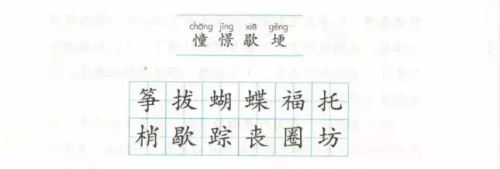 chōng jǐng xiē gěng
憧 憬 歇 埂
筝 拔 蝴 蝶 福 托
梢 歇 踪 丧 圈 坊